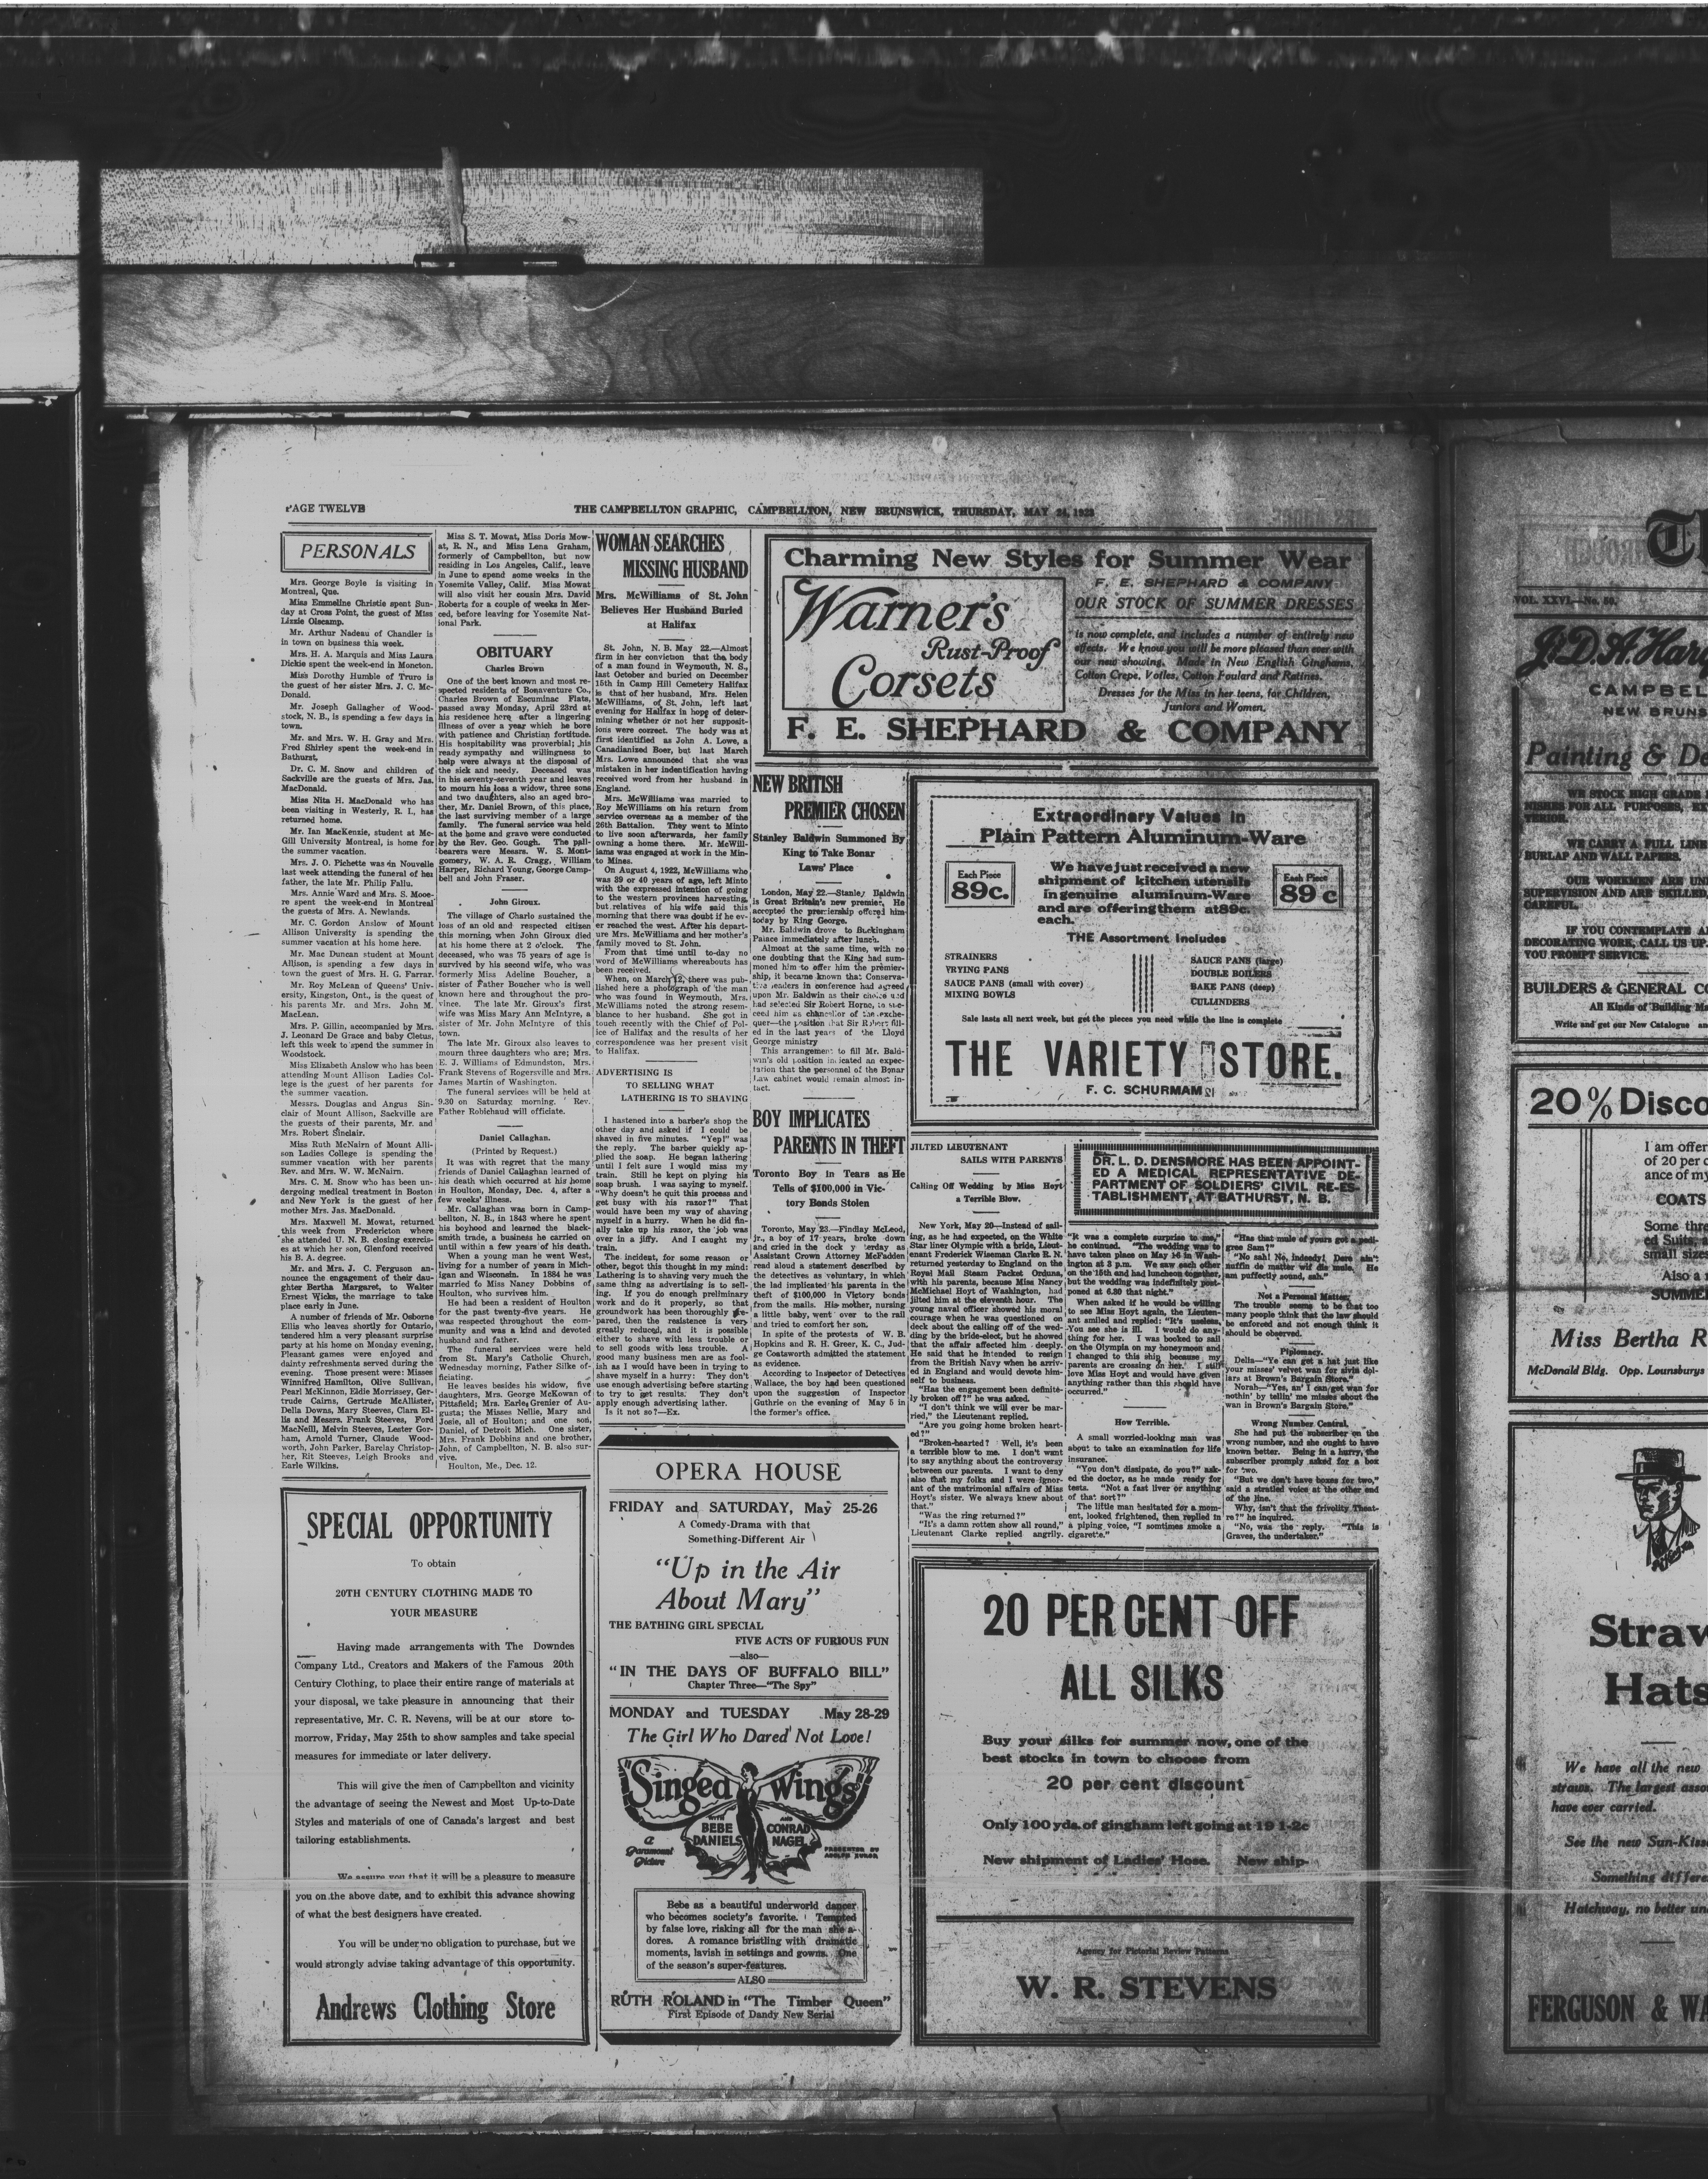 PAGE TWELVE
THE CAMPBELLTON GRAPHIC, CAMPBELLTON, NEW BRUNSWICK, THURSDAY, MAY 24, 1923
PERSONALS
Mrs. George Boyle is visiting in
Montreal, Que.
Miss Emmeline Christie spent Sun-
day at Cross Point, the guest of Miss
Lizzie Olscamp.
Mr. Arthur Nadeau of Chandler is
in town on business this week.
Mrs. H. A. Marquis and Miss Laura
Dickie spent the week-end in Moncton.
Miss Dorothy Humble of Truro is
the guest of her sister Mrs. J. C. Mc-
Donald.
Mr. Joseph Gallagher of Wood-
stock, N. B., is spending a few days in
town.
Mr. and Mrs. W. H. Gray and Mrs.
Fred Shirley spent the week-end in
Bathurst.
Dr. C. M. Snow and children of
Sackville are the guests of Mrs. Jas.
MacDonald.
Miss Nita H. MacDonald who has
been visiting in Westerly, R. I., has
returned home.
Mr. Ian MacKenzie, student at Mc-
Gill University Montreal, is home for
the summer vacation.
Mrs. J. O. Pichette was in Nouvelle
last week attending the funeral of her
father, the late Mr. Philip Fallu.
Mrs. Annie Ward and Mrs. S. Mooe-
re spent the week-end in Montreal
the guests of Mrs. A. Newlands.
Mr. C. Gordon Anslow of Mount
Allison University is spending the
summer vacation at his home here.
Mr. Mac Duncan student at Mount
Allison, is spending a few days in
town the guest of Mrs. H. G. Farrar.
Mr. Roy McLean of Queens' Univ-
ersity, Kingston, Ont., is the guest of
his parents Mr. and Mrs. John M.
MacLean.
Mrs. P. Gillin, accompanied by Mrs.
J. Leonard De Grace and baby Cletus,
left this week to spend the summer in
Woodstock.
Miss Elizabeth Anslow who has been
attending Mount Allison Ladies Col-
lege is the guest of her parents for
the summer vacation.
Messrs. Douglas and Angus Sin-
clair of Mount Allison, Sackville are
the guests of their parents, Mr. and
Mrs. Robert Sinclair.
Miss Ruth McNairn of Mount Alli-
son Ladies College is spending the
summer vacation with her parents
Rev. and Mrs. W. W. McNairn.
Mrs. C. M. Snow who has been un-
dergoing medical treatment in Boston
and New York is the guest of her
mother Mrs. Jas. MacDonald.
Mrs. Maxwell M. Mowat, returned
this week from Fredericton where
she attended U. N. B. closing exercis-
es at which her son, Glenford received
his B. A. degree.
Mr. and Mrs. J. C. Ferguson an-
nounce the engagement of their dau-
ghter Bertha Margaret, to Walter
Ernest Wicks, the marriage to take
place early in June.
A number of friends of Mr. Osborne
Ellis who leaves shortly for Ontario,
tendered him a very pleasant surprise
party at his home on Monday evening.
Pleasant games were enjoyed and
dainty refreshments served during the
evening. Those present were: Misses
Winnifred Hamilton, Olive Sullivan,
Pearl McKinnon, Eddie Morrissey, Ger-
trude Cairns, Gertrude McAllister,
Della Downs, Mary Steeves, Clara El-
lis and Messrs. Frank Steeves, Ford
MacNeill, Melvin Steeves, Lester Gor-
ham, Arnold Turner, Claude Wood-
worth, John Parker, Barclay Christop-
her, Rit Steeves, Leigh Brooks and
Earle Wilkins.
Miss S. T. Mowat, Miss Doris Mow-
at, R. N., and Miss Lena Graham,
formerly of Campbellton, but now
residing in Los Angeles, Calif., leave
in June to spend some weeks in the
Yosemite Valley, Calif. Miss Mowat
will also visit her cousin Mrs. David
Roberts for a couple of weeks in Mer-
ced, before leaving for Yosemite Nat-
ional Park.
OBITUARY
Charles Brown
One of the best known and most re-
spected residents of Bonaventure Co.,
Charles Brown of Escuminac Flats,
passed away Monday, April 23rd at
his residence here after a lingering
illness of over a year which he bore
with patience and Christian fortitude.
His hospitality was proverbial; his
ready sympathy and willingness to
help were always at the disposal of
the sick and needy. Deceased was
in his seventy-seventh year and leaves
to mourn his loss a widow, three sons
and two daughters, also an aged bro-
ther, Mr. Daniel Brown, of this place,
the last surviving member of a large
family. The funeral service was held
at the home and grave were conducted
by the Rev. Geo. Gough. The pall-
bearers were Messrs. W. S. Mont-
gomery, W. A. R. Cragg, William
Harper, Richard Young, George Camp-
bell and John Fraser.
John Giroux.
The village of Charlo sustained the
loss of an old and respected citizen
this morning, when John Giroux died
at his home there at 2 o'clock. The
deceased, who was 75 years of age is
survived by his second wife, who was
formerly Miss Adeline Boucher, a
sister of Father Boucher who is well
known here and throughout the pro-
vince. The late Mr. Giroux's first
wife was Miss Mary Ann McIntyre, a
sister of Mr. John McIntyre of this
town.
The late Mr. Giroux also leaves to
mourn three daughters who are; Mrs.
E. J. Williams of Edmundston, Mrs.
Frank Stevens of Rogersville and Mrs.
James Martin of Washington.
The funeral services will be held at
9.30 on Saturday morning. Rev.
Father Robichaud will officiate.
Daniel Callaghan.
(Printed by Request.)
It was with regret that the many
friends of Daniel Callaghan learned of
his death which occurred at his home
in Houlton, Monday, Dec. 4, after a
few weeks' illness.
Mr. Callaghan was born in Camp-
bellton, N. B., in 1843 where he spent
his boyhood and learned the black-
smith trade, a business he carried on
until within a few years of his death.
When a young man he went West,
living for a number of years in Mich-
igan and Wisconsin. In 1884 he was
married to Miss Nancy Dobbins of
Houlton, who survives him.
He had been a resident of Houlton
for the past twenty-five years. He
was respected throughout the com-
munity and was a kind and devoted
husband and father.
The funeral services were held
from St. Mary's Catholic Church,
Wednesday morning, Father Silke of-
ficiating.
He leaves besides his widow, five
daughters, Mrs. George McKowan of
Pittsfield; Mrs. Earle Grenier of Au-
gusta; the Misses Nellie, Mary and
Josie, all of Houlton; and one son,
Daniel, of Detroit Mich. One sister,
Mrs. Frank Dobbins and one brother,
John, of Campbellton, N. B. also sur-
vive.
Houlton, Me., Dec. 12.
WOMAN SEARCHES
MISSING HUSBAND
Mrs. McWilliams of St. John
Believes Her Husband Buried
at Halifax
St. John, N. B. May 22.—Almost
firm in her conviction that the body
of a man found in Weymouth, N. S.,
last October and buried on December
15th in Camp Hill Cemetery Halifax
is that of her husband, Mrs. Helen
McWilliams, of St. John, left last
evening for Halifax in hope of deter-
mining whether or not her supposit-
ions were correct. The body was at
first identified as John A. Lowe, a
Canadianized Boer, but last March
Mrs. Lowe announced that she was
mistaken in her indentification having
received word from her husband in
England.
Mrs. McWilliams was married to
Roy McWilliams on his return from
service overseas as a member of the
26th Battalion. They went to Minto
to live soon afterwards, her family
owning a home there. Mr. McWill-
iams was engaged at work in the Min-
to Mines.
On August 4, 1922, McWilliams who
was 39 or 40 years of age, left Minto
with the expressed intention of going
to the western provinces harvesting,
but relatives of his wife said this
morning that there was doubt if he ev-
er reached the west. After his depart-
ure Mrs. McWilliams and her mother's
family moved to St. John.
From that time until to-day no
word of McWilliams whereabouts has
been received.
When, on March 12, there was pub-
lished here a photograph of the man
who was found in Weymouth, Mrs.
McWilliams noted the strong resem-
blance to her husband. She got in
touch recently with the Chief of Pol-
ice of Halifax and the results of her
correspondence was her present visit
to Halifax.
ADVERTISING IS
TO SELLING WHAT
LATHERING IS TO SHAVING
I hastened into a barber's shop the
other day and asked if I could be
shaved in five minutes. "Yep!" was
the reply. The barber quickly ap-
plied the soap. He began lathering
until I felt sure I would miss my
train. Still he kept on plying his
soap brush. I was saying to myself.
"Why doesn't he quit this process and
get busy with his razor?" That
would have been my way of shaving
myself in a hurry. When he did fin-
ally take up his razor, the job was
over in a jiffy. And I caught my
train.
The incident, for some reason or
other, begot this thought in my mind:
Lathering is to shaving very much the
same thing as advertising is to sell-
ing. If you do enough preliminary
work and do it properly, so that
groundwork has been thoroughly pre-
pared, then the resistence is very
greatly reduced, and it is possible
either to shave with less trouble or
to sell goods with less trouble. A
good many business men are as fool-
ish as I would have been in trying to
shave myself in a hurry: They don't
use enough advertising before starting
to try to get results. They don't
apply enough advertising lather.
Is it not so?—Ex.
Charming New Styles for Summer Wear
Warner's
Rust-Proof
Corsets
F. E. SHEPHARD & COMPANY
OUR STOCK OF SUMMER DRESSES
is now complete, and includes a number of entirely new
effects. We know you will be more pleased than ever with
our new showing. Made in New English Ginghams,
Cotton Crepe, Voiles, Cotton Foulard and Ratines.
Dresses for the Miss in her teens, for Children,
Juniors and Women.
F. E. SHEPHARD & COMPANY
NEW BRITISH
PREMIER CHOSEN
Stanley Baldwin Summoned By
King to Take Bonar
Laws' Place
London, May 22.—Stanley Baldwin
is Great Britain's new premier. He
accepted the premiership offered him
today by King George.
Mr. Baldwin drove to Buckingham
Palace immediately after lunch.
Almost at the same time, with no
one doubting that the King had sum-
moned him to offer him the premier-
ship, it became known that Conserva-
tive leaders in conference had agreed
upon Mr. Baldwin as their choice and
had selected Sir Robert Horne, to suc-
ceed him as chancellor of the exche-
quer—the position that Sir Robert fill-
ed in the last years of the Lloyd
George ministry
This arrangement to fill Mr. Bald-
win's old position indicated an expec-
tation that the personnel of the Bonar
Law cabinet would remain almost in-
tact.
BOY IMPLICATES
PARENTS IN THEFT
Toronto Boy in Tears as He
Tells of $100,000 in Vic-
tory Bonds Stolen
Toronto, May 23.—Findlay McLeod,
jr., a boy of 17 years, broke down
and cried in the dock yesterday as
Assistant Crown Attorney McFadden
read aloud a statement described by
the detectives as voluntary, in which
the lad implicated his parents in the
theft of $100,000 in Victory bonds
from the mails. His mother, nursing
a little baby, went over to the rail
and tried to comfort her son.
In spite of the protests of W. B.
Hopkins and R. H. Greer, K. C., Jud-
ge Coatsworth admitted the statement
as evidence.
According to Inspector of Detectives
Wallace, the boy had been questioned
upon the suggestion of Inspector
Guthrie on the evening of May 5 in
the former's office.
Extraordinary Values in
Plain Pattern Aluminum-Ware
Each Piece
89c.
We have just received a new
shipment of kitchen utensils
in genuine aluminum-Ware
and are offering them at 89c.
each.
Each Piece
89 c
THE Assortment Includes
STRAINERS
FRYING PANS
SAUCE PANS (small with cover)
MIXING BOWLS
SAUCE PANS (large)
DOUBLE BOILERS
BAKE PANS (deep)
CULLINDERS
Sale lasts all next week, but get the pieces you need while the line is complete
THE VARIETY STORE.
F. C. SCHURMAM
JILTED LIEUTENANT
SAILS WITH PARENTS
Calling Off Wedding by Miss Hoyt
a Terrible Blow.
New York, May 20—Instead of sail-
ing, as he had expected, on the White
Star liner Olympic with a bride, Lieut-
enant Frederick Wiseman Clarke R. N.
returned yesterday to England on the
Royal Mail Steam Packet Orduna,
with his parents, because Miss Nancy
McMichael Hoyt of Washington, had
jilted him at the eleventh hour. The
young naval officer showed his moral
courage when he was questioned on
deck about the calling off of the wed-
ding by the bride-elect, but he showed
that the affair affected him deeply.
He said that he intended to resign
from the British Navy when he arriv-
ed in England and would devote him-
self to business.
"Has the engagement been definite-
ly broken off?" he was asked.
"I don't think we will ever be mar-
ried," the Lieutenant replied.
"Are you going home broken heart-
ed?"
"Broken-hearted? Well, it's been
a terrible blow to me. I don't want
to say anything about the controversy
between our parents. I want to deny
also that my folks and I were ignor-
ant of the matrimonial affairs of Miss
Hoyt's sister. We always knew about
that."
"Was the ring returned?"
"It's a damn rotten show all round,"
Lieutenant Clarke replied angrily.
DR. L. D. DENSMORE HAS BEEN APPOINT-
ED A MEDICAL REPRESENTATIVE DE-
PARTMENT OF SOLDIERS' CIVIL RE-ES-
TABLISHMENT, AT BATHURST, N. B.
"It was a complete surprise to me,"
he continued. "The wedding was to
have taken place on May 16 in Wash-
ington at 3 p.m. We saw each other
on the 15th and had luncheon together,
but the wedding was indefinitely post-
poned at 6.30 that night."
When asked if he would be willing
to see Miss Hoyt again, the Lieuten-
ant smiled and replied: "It's useless.
You see she is ill. I would do any-
thing for her. I was booked to sail
on the Olympia on my honeymoon and
I changed to this ship because my
parents are crossing on her. I still
love Miss Hoyt and would have given
anything rather than this should have
occurred."
How Terrible.
A small worried-looking man was
about to take an examination for life
insurance.
"You don't dissipate, do you?" ask-
ed the doctor, as he made ready for
tests. "Not a fast liver or anything
of that sort?"
The little man hesitated for a mom-
ent, looked frightened, then replied in
a piping voice, "I somtimes smoke a
cigarette."
"Has that mule of yours got a pedi-
gree Sam?"
"No sah! No, indeedy! Dere ain't
nuffin de matter wif dis mule. He
am puffectly sound, sah."
Not a Personal Matter.
The trouble seems to be that too
many people think that the law should
be enforced and not enough think it
should be observed.
Piplomacy.
Della—"Ye can get a hat just like
your misses' velvet wan for sivin dol-
lars at Brown's Bargain Store."
Norah—"Yes, an' I can get wan for
nothin' by tellin' me misses about the
wan in Brown's Bargain Store."
Wrong Number Central.
She had put the subscriber on the
wrong number, and she ought to have
known better. Being in a hurry, the
subscriber promply asked for a box
for two.
"But we don't have boxes for two,"
said a stratled voice at the other end
of the line.
Why, isn't that the frivolity Theat-
re?" he inquired.
"No, was the reply. "This is
Graves, the undertaker."
SPECIAL OPPORTUNITY
To obtain
20TH CENTURY CLOTHING MADE TO
YOUR MEASURE
Having made arrangements with The Downdes
Company Ltd., Creators and Makers of the Famous 20th
Century Clothing, to place their entire range of materials at
your disposal, we take pleasure in announcing that their
representative, Mr. C. R. Nevens, will be at our store to-
morrow, Friday, May 25th to show samples and take special
measures for immediate or later delivery.
This will give the men of Campbellton and vicinity
the advantage of seeing the Newest and Most Up-to-Date
Styles and materials of one of Canada's largest and best
tailoring establishments.
We assure you that it will be a pleasure to measure
you on the above date, and to exhibit this advance showing
of what the best designers have created.
You will be under no obligation to purchase, but we
would strongly advise taking advantage of this opportunity.
Andrews Clothing Store
OPERA HOUSE
FRIDAY and SATURDAY, May 25-26
A Comedy-Drama with that
Something-Different Air
"Up in the Air
About Mary"
THE BATHING GIRL SPECIAL
FIVE ACTS OF FURIOUS FUN
—also—
"IN THE DAYS OF BUFFALO BILL"
Chapter Three—"The Spy"
MONDAY and TUESDAY May 28-29
The Girl Who Dared Not Love!
"Singed Wings"
WITH BEBE DANIELS
AND CONRAD NAGEL
a Paramount Picture
PRESENTED BY ADOLPH ZUKOR
Bebe as a beautiful underworld dancer
who becomes society's favorite. Tempted
by false love, risking all for the man she a-
dores. A romance bristling with dramatic
moments, lavish in settings and gowns. One
of the season's super-features.
ALSO
RUTH ROLAND in "The Timber Queen"
First Episode of Dandy New Serial
20 PER CENT OFF
ALL SILKS
Buy your silks for summer now, one of the
best stocks in town to choose from
20 per cent discount
Only 100 yds. of gingham left going at 19 1-2c
New shipment of Ladies' Hose. New ship-
Agency for Pictorial Review Patterns
W. R. STEVENS
VOL. XXVI.—No. 50.
J. D. A. Har
CAMPBEL
NEW BRUNS
Painting & De
WE STOCK HIGH GRADE
NISHES FOR ALL PURPOSES, EX
TERIOR.
WE CARRY A FULL LINE
BURLAP AND WALL PAPERS.
OUR WORKMEN ARE UN
SUPERVISION AND ARE SKILLED,
CAREFUL.
IF YOU CONTEMPLATE A
DECORATING WORK, CALL US UP.
YOU PROMPT SERVICE.
BUILDERS & GENERAL CO
All Kinds of Building Ma
Write and get our New Catalogue an
20% Disco
I am offer
of 20 per c
ance of my
COATS
Some thre
ed Suits, a
small sizes
Also a
SUMME
Miss Bertha R
McDonald Bldg. Opp. Lounsburys
Straw
Hats
We have all the new
straws. The largest asso
have ever carried.
See the new Sun-Kiss
Something differe
Hatchway, no better un
FERGUSON & WA